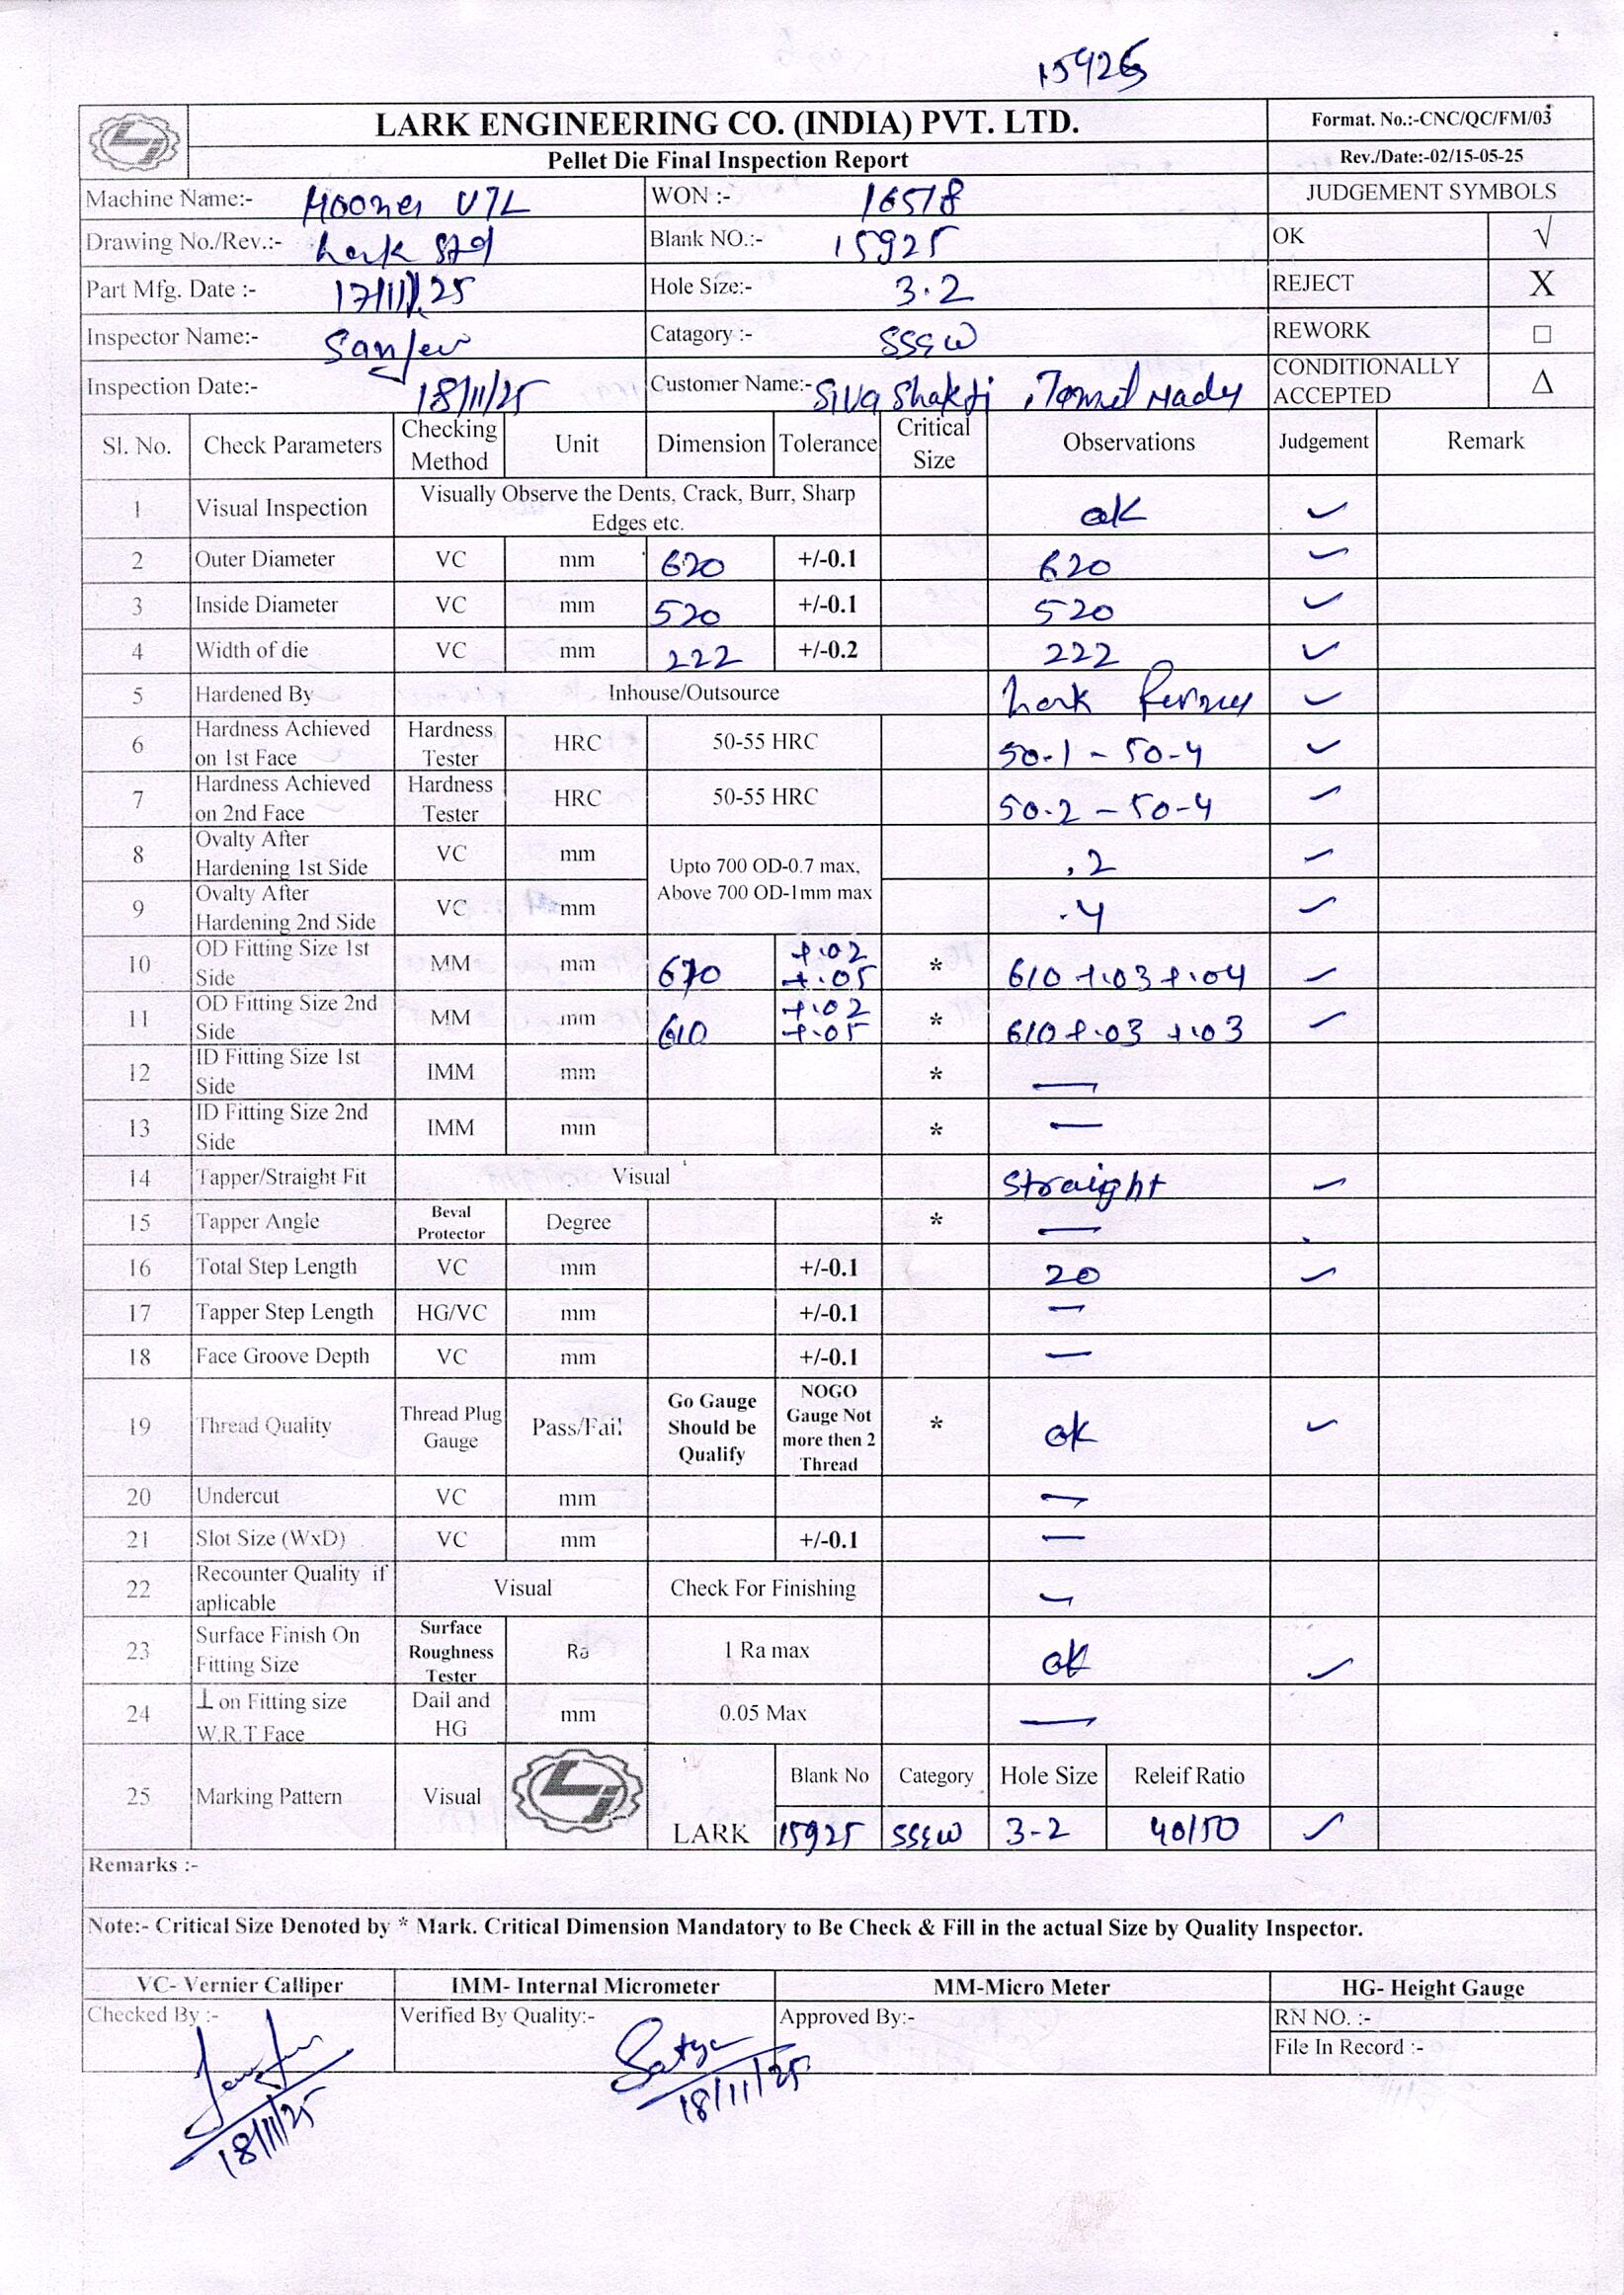 15925
LARK ENGINEERING CO. (INDIA) PVT. LTD.
Format. No.:-CNC/QC/FM/03
Pellet Die Final Inspection Report
Rev./Date:-02/15-05-25
Machine Name:- V7L WON :- 16518 JUDGEMENT SYMBOLS
Drawing No./Rev.:- Lark Std Blank NO.:- 15925 OK √
Part Mfg. Date :- 17/11/25 Hole Size:- 3.2 REJECT X
Inspector Name:- Sanjeev Catagory :- SSEW REWORK □
Inspection Date:- 18/11/25 Customer Name:- Siva Shakti, Tamil Nadu CONDITIONALLY ACCEPTED Δ
Sl. No. Check Parameters Checking Method Unit Dimension Tolerance Critical Size Observations Judgement Remark
1 Visual Inspection Visually Observe the Dents, Crack, Burr, Sharp Edges etc. ok ✓
2 Outer Diameter VC mm 620 +/-0.1 620 ✓
3 Inside Diameter VC mm 520 +/-0.1 520 ✓
4 Width of die VC mm 222 +/-0.2 222 ✓
5 Hardened By Inhouse/Outsource Lark ✓
6 Hardness Achieved on 1st Face Hardness Tester HRC 50-55 HRC 50.1 - 50.4 ✓
7 Hardness Achieved on 2nd Face Hardness Tester HRC 50-55 HRC 50.2 - 50.4 ✓
8 Ovalty After Hardening 1st Side VC mm Upto 700 OD-0.7 max, Above 700 OD-1mm max .2 ✓
9 Ovalty After Hardening 2nd Side VC mm .4 ✓
10 OD Fitting Size 1st Side MM mm 610 +.02 +.05 * 610 +.03 +.04 ✓
11 OD Fitting Size 2nd Side MM mm 610 +.02 +.05 * 610 +.03 +.03 ✓
12 ID Fitting Size 1st Side IMM mm * —
13 ID Fitting Size 2nd Side IMM mm * —
14 Tapper/Straight Fit Visual Straight ✓
15 Tapper Angle Beval Protector Degree * —
16 Total Step Length VC mm +/-0.1 20 ✓
17 Tapper Step Length HG/VC mm +/-0.1 —
18 Face Groove Depth VC mm +/-0.1 —
19 Thread Quality Thread Plug Gauge Pass/Fail Go Gauge Should be Qualify NOGO Gauge Not more then 2 Thread * ok ✓
20 Undercut VC mm —
21 Slot Size (WxD) VC mm +/-0.1 —
22 Recounter Quality if aplicable Visual Check For Finishing —
23 Surface Finish On Fitting Size Surface Roughness Tester Ra 1 Ra max ok ✓
24 ⊥ on Fitting size W.R.T Face Dail and HG mm 0.05 Max —
25 Marking Pattern Visual LARK Blank No Category Hole Size Releif Ratio
15925 SSEW 3-2 40/50 ✓
Remarks :-
Note:- Critical Size Denoted by * Mark. Critical Dimension Mandatory to Be Check & Fill in the actual Size by Quality Inspector.
VC- Vernier Calliper IMM- Internal Micrometer MM-Micro Meter HG- Height Gauge
Checked By :- Verified By Quality:- Satya Approved By:- RN NO. :-
File In Record :-
18/11/25 18/11/25